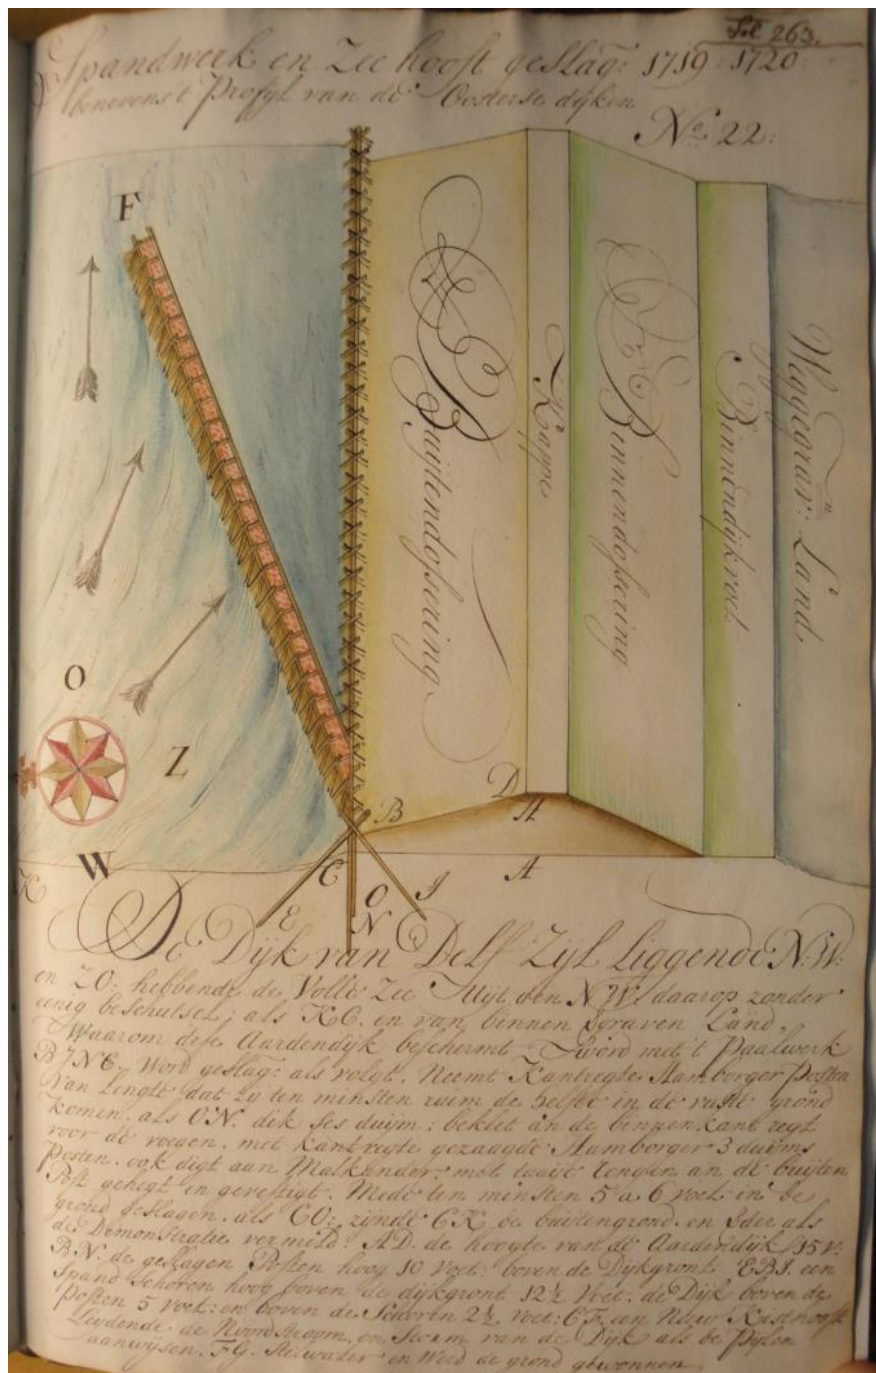 Fol 263.
Spandwerk en Zee hooft geslag: 1719 1720
benevens t Profyl van de Oosterse dijken
No. 22:
F
Buijtendossering
Kappe
Binnendossering
Binnendijkvoet
Weggegrav:n Land
O
Z
W
K
B
D
A
C
A
E
O
I
N
De Dijk van Delf Zijl liggende N:W:
en ZO: hebbende de Volle Zee Uijt den N.W. daarop zonder
eenig beschutsel; als K C. en van binnen graven Land.
Waarom dese Aardendijk beschermt word met 't Paalwerk
B I N E. Word geslag: als volgt. Neemt Kantregte Hamborger Posten
Van Lengte dat zy ten minsten ruim de helfte in de vaste grond
komen. als O N. dik ses duijm; beklet an de binnen kant regt
voor de voegen. met kantregte gezaagde Hamborger 3 duijms
Posten. ook digt aan Malkander. met lengen an de buijten
Post gehegt en gevestigt. Mede ten minsten 5 a 6 voet in be
grond geslagen. als C O: zijnde C K be buitengrond. en Ider als
de Demonstratie vermeld: A D. de hoogte van de Aardendijk 15 v:
B N. de geslagen Posten hoog 10 Voet: boven de Dijkgront. E B I. een
Spand Schoren hoog boven de dijkgront 12½ Voet. de Dijk boven de
Posten 5 voet: en boven de Schoren 2½ voet: C F. een Nieuw Kisthooft
Leydende de Noordstroom, en Storm van de Dijk als be Pijlen
aanwijsen. F G. Stilwater en Werd de grond gewonnen